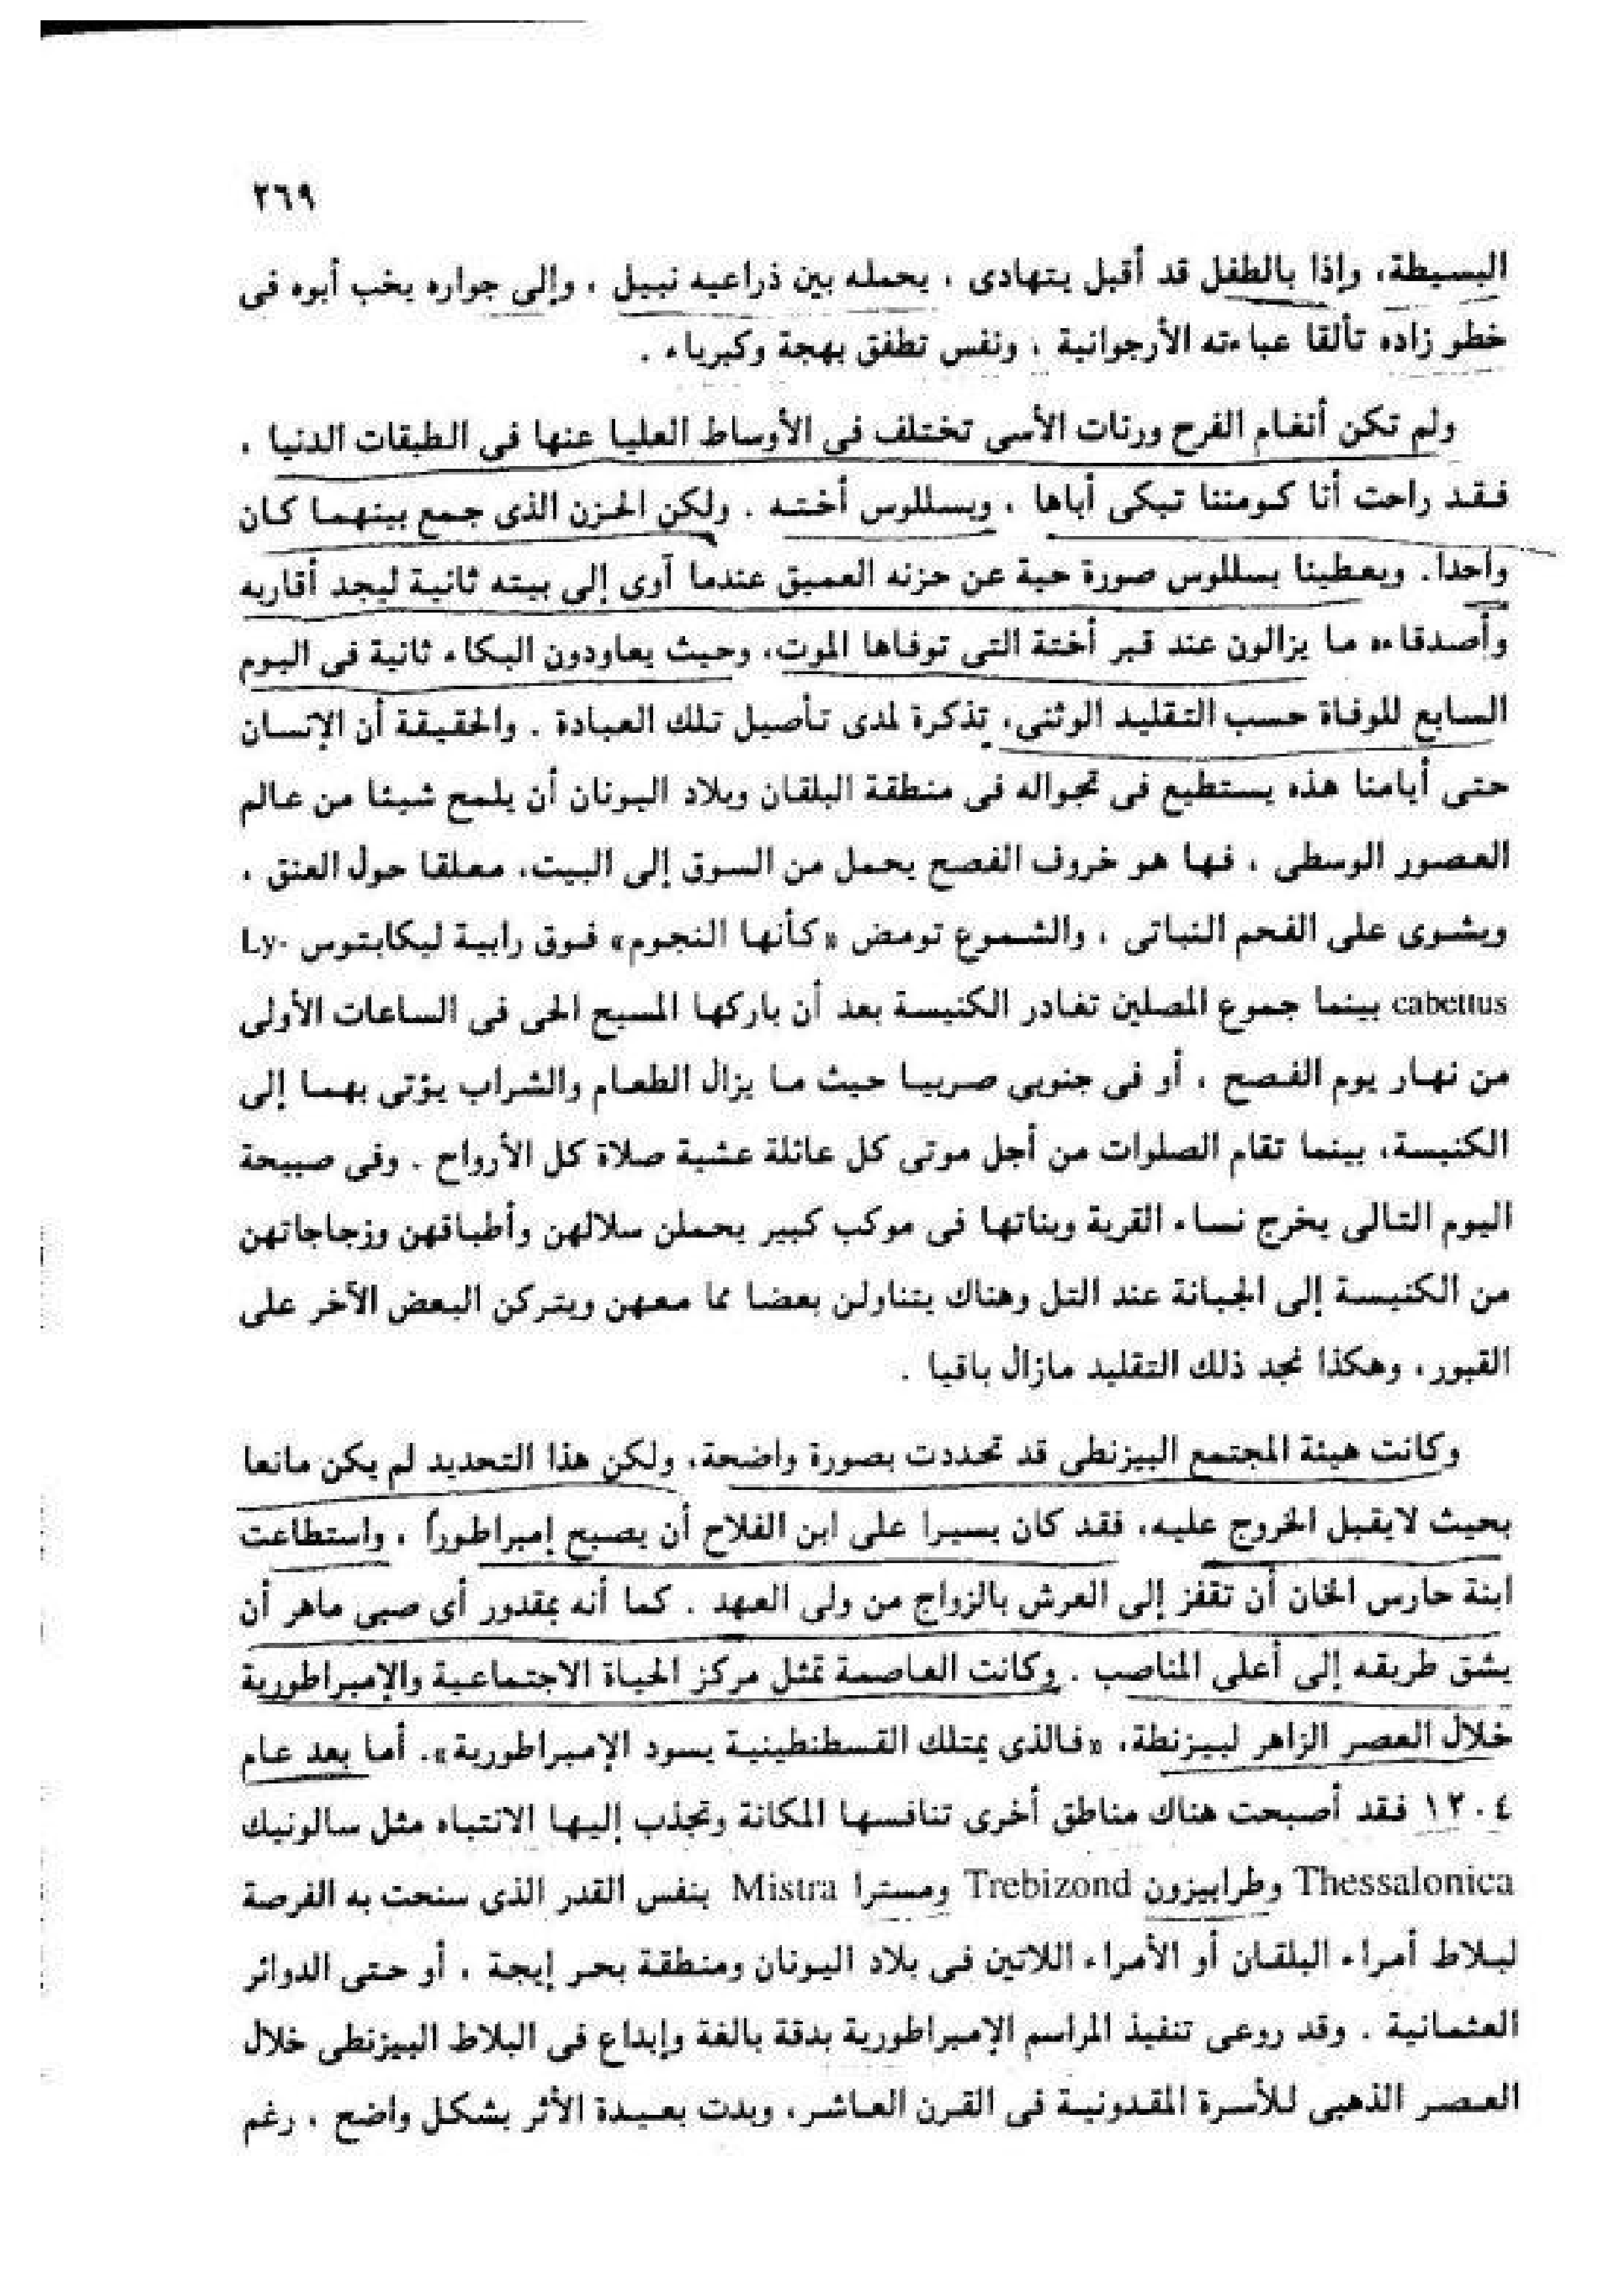 ٢٦٩
البسيطة، وإذا بالطفل قد أقبل يتهادى ، يحمله بين ذراعيه نبيل ، وإلى جواره يخب أبوه فى
خطو زاده تألقا عباءته الأرجوانية ، ونفس تطفق بهجة وكبرياء .
ولم تكن أنغام الفرح ورنات الأسى تختلف فى الأوساط العليا عنها فى الطبقات الدنيا .
فقد راحت أنا كومننا تبكى أباها ، وبسللوس أخته . ولكن الحزن الذى جمع بينهما كان
واحدا. ويعطينا بسللوس صورة حية عن حزنه العميق عندما آوى إلى بيته ثانية ليجد أقاربه
وأصدقاءه ما يزالون عند قبر أختة التى توفاها الموت، وحيث يعاودون البكاء ثانية فى اليوم
السابع للوفاة حسب التقليد الوثنى، تذكرة لمدى تأصيل تلك العبادة . والحقيقة أن الإنسان
حتى أيامنا هذه يستطيع فى تجواله فى منطقة البلقان وبلاد اليونان أن يلمح شيئا من عالم
العصور الوسطى ، فها هو خروف الفصح يحمل من السوق إلى البيت، معلقا حول العنق ،
ويشوى على الفحم النباتى ، والشموع تومض «كأنها النجوم» فوق رابية ليكابتوس Ly-
cabettus بينما جموع المصلين تغادر الكنيسة بعد أن باركها المسيح الحى فى الساعات الأولى
من نهار يوم الفصح ، أو فى جنوبى صربيا حيث ما يزال الطعام والشراب يؤتى بهما إلى
الكنيسة، بينما تقام الصلوات من أجل موتى كل عائلة عشية صلاة كل الأرواح . وفى صبيحة
اليوم التالى يخرج نساء القرية وبناتها فى موكب كبير يحملن سلالهن وأطباقهن وزجاجاتهن
من الكنيسة إلى الجبانة عند التل وهناك يتناولن بعضا مما معهن ويتركن البعض الآخر على
القبور، وهكذا نجد ذلك التقليد مازال باقيا .
وكانت هيئة المجتمع البيزنطى قد تحددت بصورة واضحة، ولكن هذا التحديد لم يكن مانعا
بحيث لايقبل الخروج عليه، فقد كان يسيرا على ابن الفلاح أن يصبح إمبراطوراً ، واستطاعت
ابنة حارس الخان أن تقفز إلى العرش بالزواج من ولى العهد . كما أنه بمقدور أى صبى ماهر أن
يشق طريقه إلى أعلى المناصب . وكانت العاصمة تمثل مركز الحياة الاجتماعية والإمبراطورية
خلال العصر الزاهر لبيزنطة، «فالذى يمتلك القسطنطينية يسود الإمبراطورية». أما بعد عام
١٢٠٤ فقد أصبحت هناك مناطق أخرى تنافسها المكانة وتجذب إليها الانتباه مثل سالونيك
Thessalonica وطرابيزون Trebizond ومسترا Mistra بنفس القدر الذى سنحت به الفرصة
لبلاط أمراء البلقان أو الأمراء اللاتين فى بلاد اليونان ومنطقة بحر إيجة ، أو حتى الدوائر
العثمانية . وقد روعى تنفيذ المراسم الإمبراطورية بدقة بالغة وإبداع فى البلاط البيزنطى خلال
العصر الذهبى للأسرة المقدونية فى القرن العاشر، وبدت بعيدة الأثر بشكل واضح ، رغم